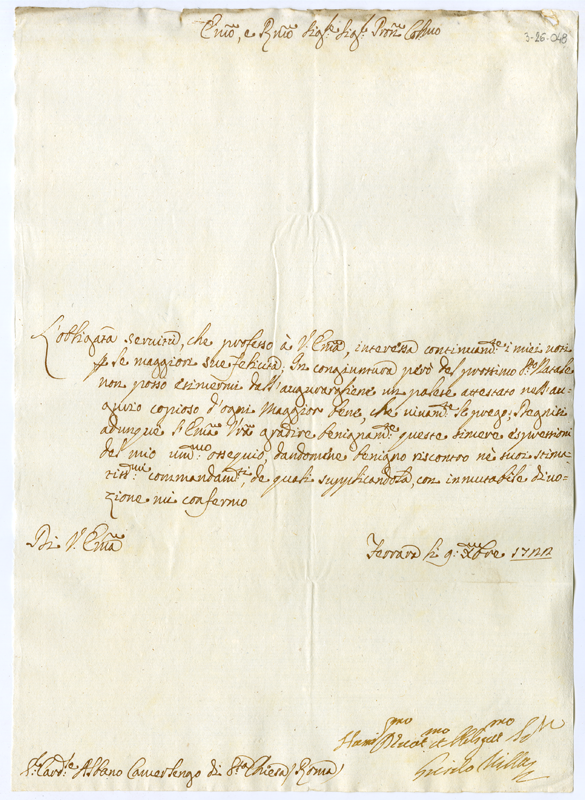 Emo, e Rmo Sigre Sigre Pron Colmo
3-26-048
L'obligata servitù, che professo à V. Emza, interessa continuamte i miei voti
p le maggiori sue felicità; In congiuntura però del prossimo Sto Natale
non posso esimermi dall'augurargliene un palese attestato nell'an-
nunzio copioso d'ogni maggior bene, che vivamte le prego; Si degni
adunque l'Emza Vra gradire benignamte queste sincere espressioni
del mio ummo ossequio, dandomene benigno riscontro nè suoi stima-
tissmi commandamti, de quali supplicandola, con inmutabile divo-
zione mi confermo
Di V. Emza
Ferrara li 9: Xbre 1722
Hummo Devotmo et Obligatmo Sre
Guido Villa
Sr Carde Albano Camerlengo di Sta Chiesa (Roma)